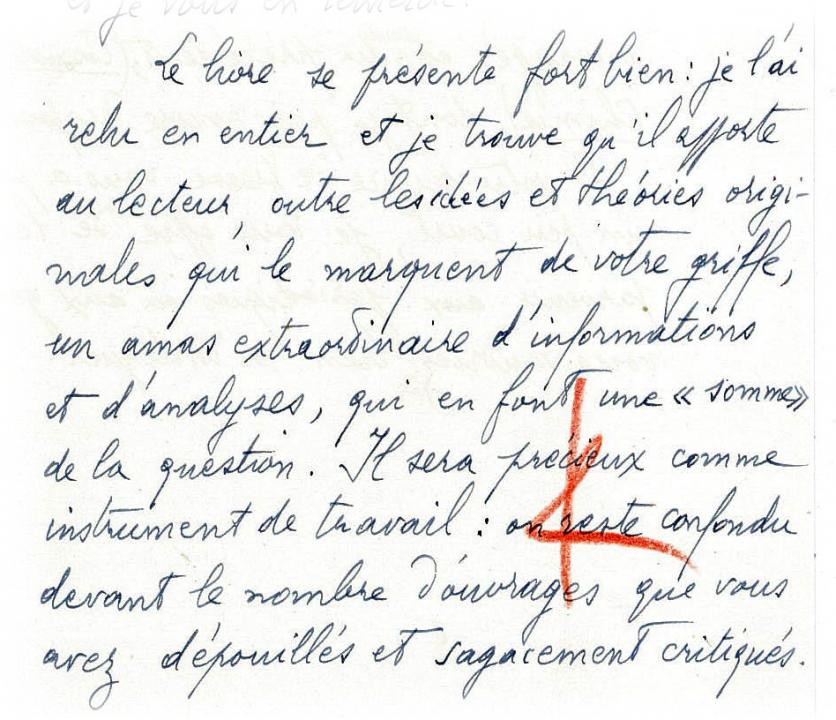 et je vous en remercie.
Le livre se présente fort bien : je l'ai
relu en entier et je trouve qu'il apporte
au lecteur outre les idées et théories origi-
nales qui le marquent de votre griffe,
un amas extraordinaire d'informations
et d'analyses, qui en font une « somme »
de la question. Il sera précieux comme
instrument de travail : on reste confondu
devant le nombre d'ouvrages que vous
avez dépouillés et sagacement critiqués.